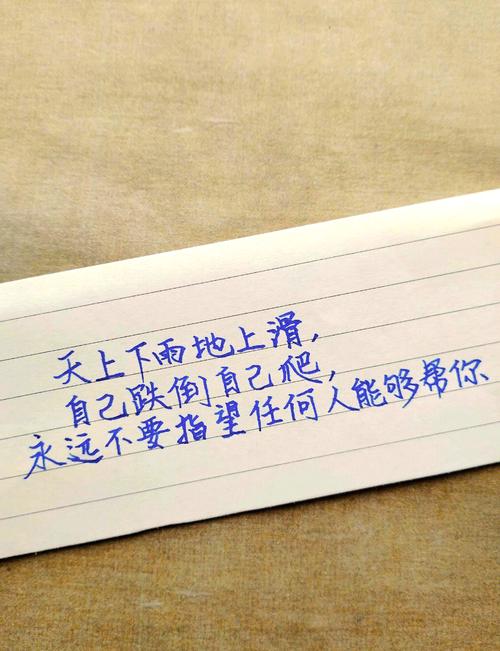 天上下雨地上滑,
自己跌倒自己爬,
永远不要指望任何人能够帮你